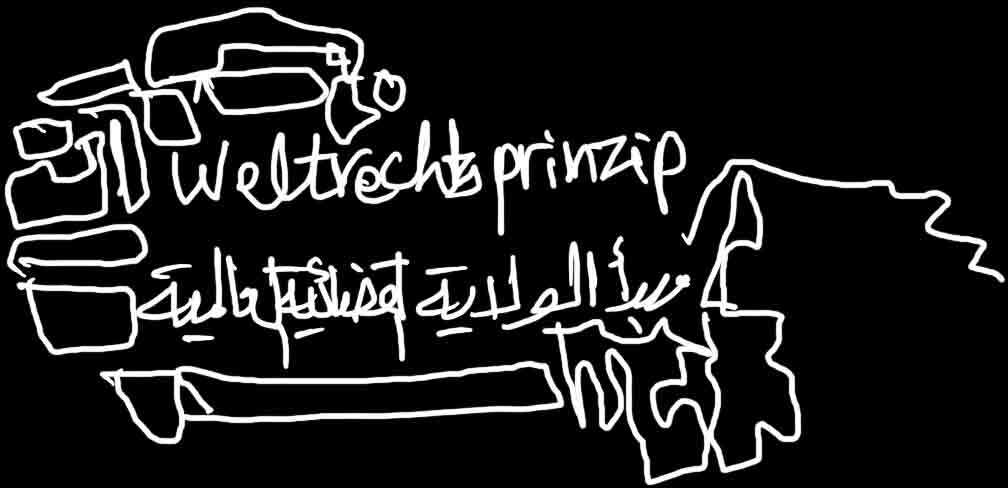 Weltrechtsprinzip
مبدأ الولاية القضائية العالمية